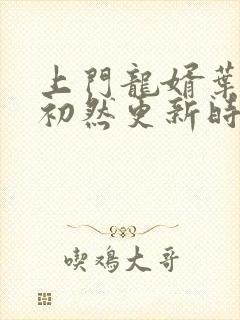 上門龍婿葉
初然更新時
喫鸡大哥